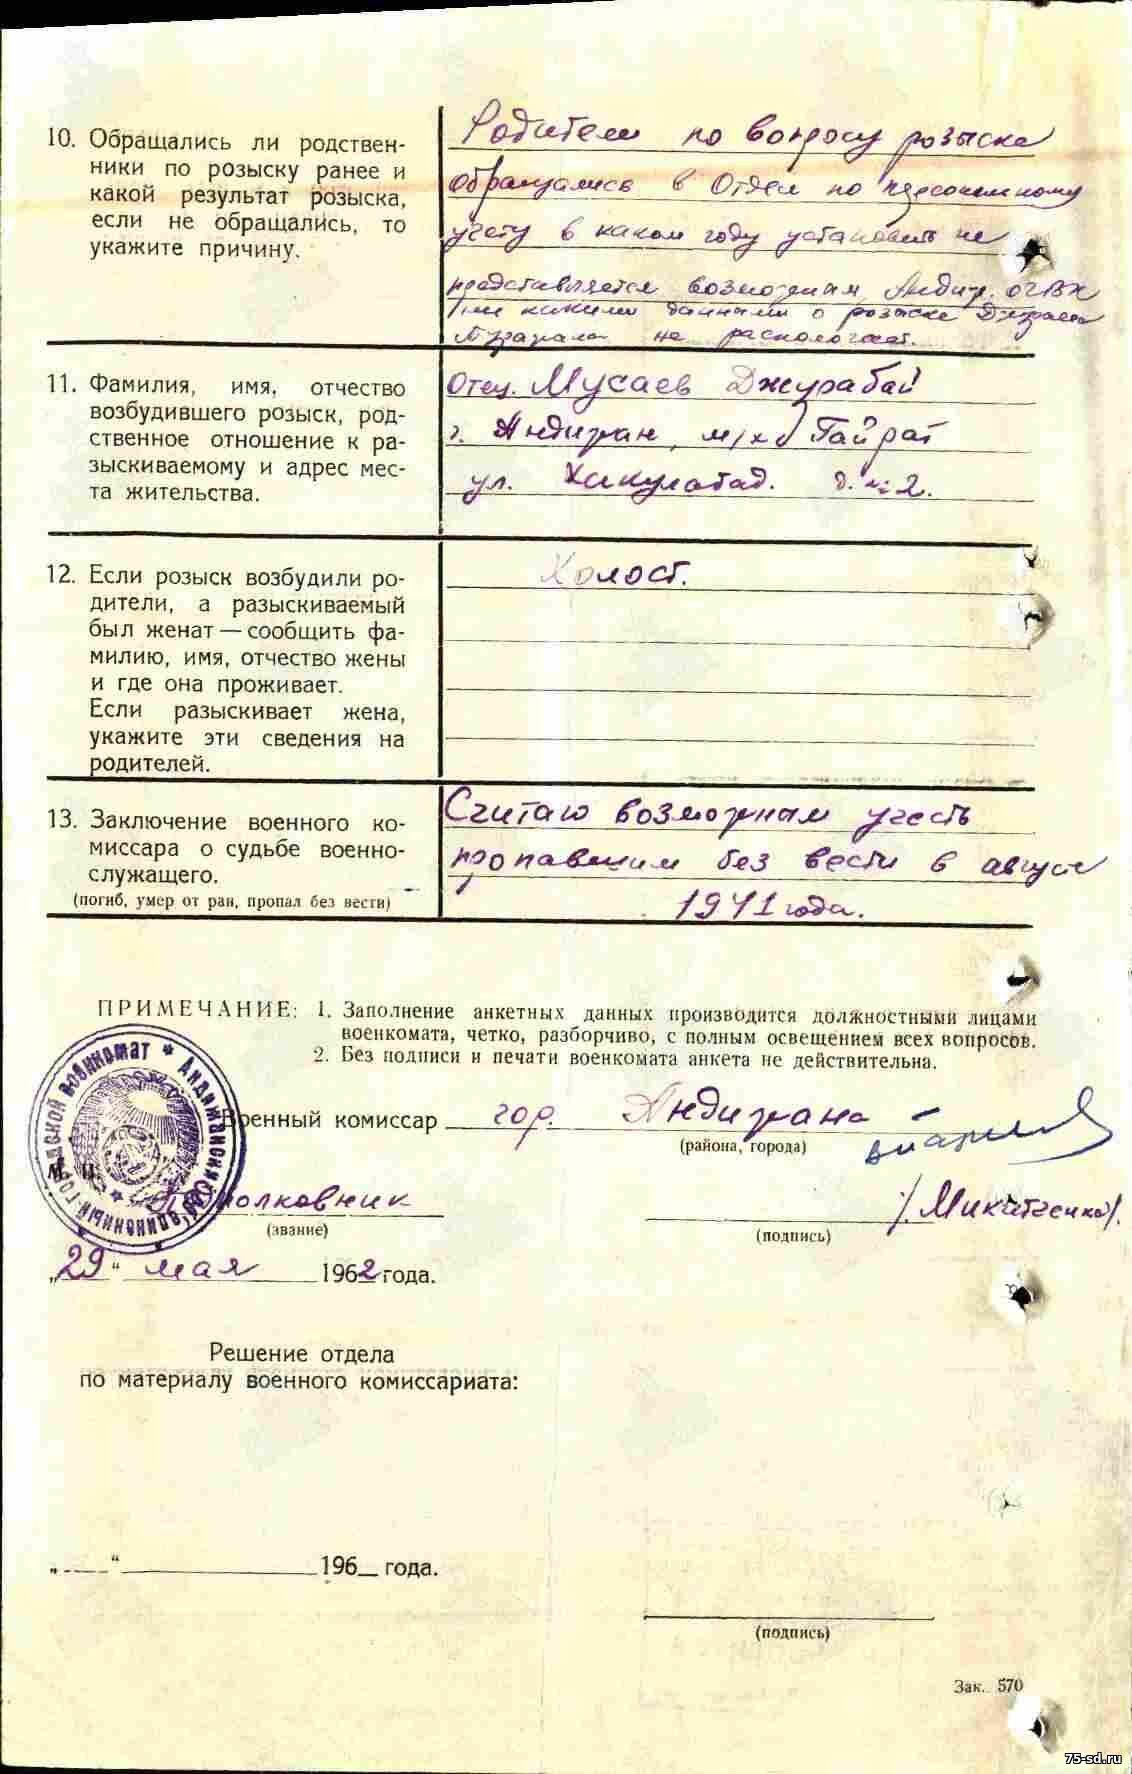 10. Обращались ли родствен-
ники по розыску ранее и
какой результат розыска,
если не обращались, то
укажите причину.
Родители по вопросу розыска
обращались в Отдел по персональному
учету в каком году установить не
представляется возможным, Андиж. ОГВК
ни какими данными о розыске
не распологает.
11. Фамилия, имя, отчество
возбудившего розыск, род-
ственное отношение к ра-
зыскиваемому и адрес мес-
та жительства.
Отец. Мусаев Джурабай
г. Андижан, м/хо Гайрат
ул. Хакулабад. д. № 2.
12. Если розыск возбудили ро-
дители, а разыскиваемый
был женат — сообщить фа-
милию, имя, отчество жены
и где она проживает.
Если разыскивает жена,
укажите эти сведения на
родителей.
Холост.
13. Заключение военного ко-
миссара о судьбе военно-
служащего.
(погиб, умер от ран, пропал без вести)
Считаю возможным учесть
пропавшим без вести в август
1941 года.
ПРИМЕЧАНИЕ: 1. Заполнение анкетных данных производится должностными лицами
военкомата, четко, разборчиво, с полным освещением всех вопросов.
2. Без подписи и печати военкомата анкета не действительна.
Военный комиссар гор. Андижана
(района, города)
М. П.
Андижанский объединенный городской военкомат
Подполковник
(звание)
/Микитченко/.
(подпись)
„29“ мая 1962 года.
Решение отдела
по материалу военного комиссариата:
„___“ ______ 196_ года.
(подпись)
Зак. 570
75-sd.ru